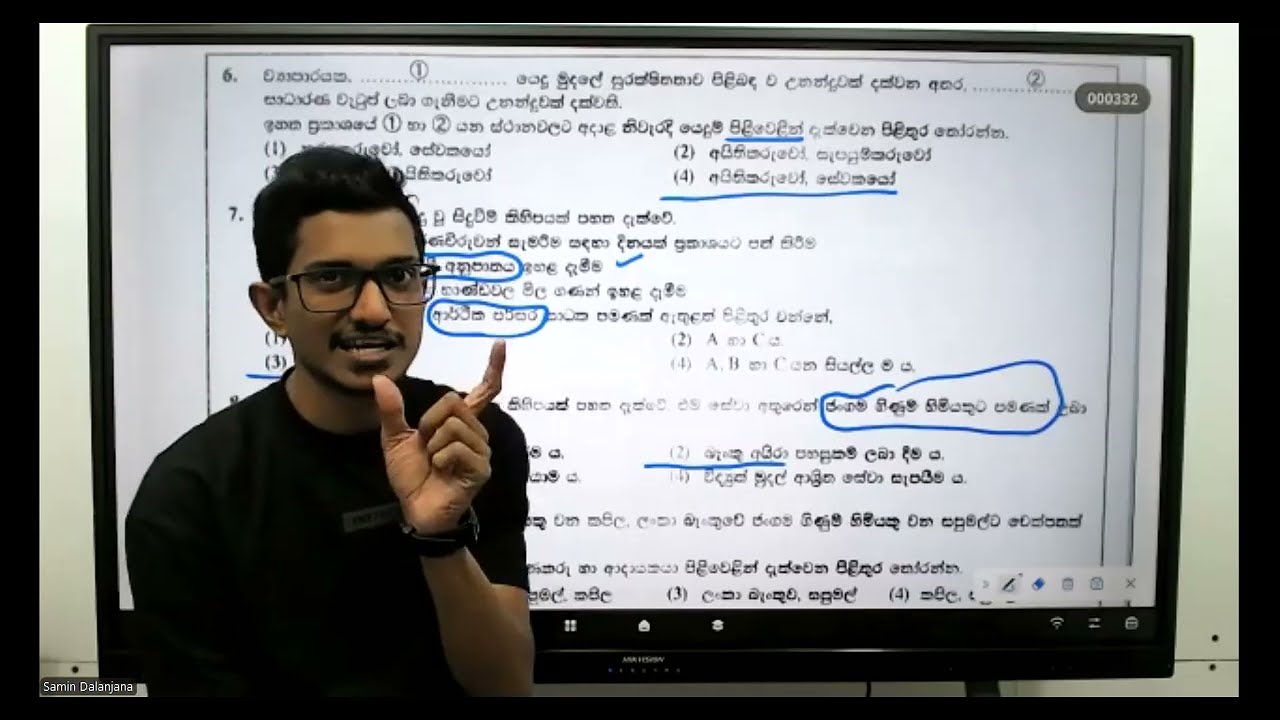 6. ව්‍යාපාරයක, .................①................. යෙදූ මුදලේ සුරක්ෂිතතාව පිළිබඳ ව උනන්දුවක් දක්වන අතර, ..............②..........
සාධාරණ වැටුප් ලබා ගැනීමට උනන්දුවක් දක්වති.
000332
ඉහත ප්‍රකාශයේ ① හා ② යන ස්ථානවලට අදාළ නිවැරදි යෙදුම් පිළිවෙළින් දැක්වෙන පිළිතුර තෝරන්න.
(1) සේවකයෝ (2) අයිතිකරුවෝ, සැපයුම්කරුවෝ
අයිතිකරුවෝ (4) අයිතිකරුවෝ, සේවකයෝ
7. වූ සිදුවීම් කිහිපයක් පහත දැක්වේ.
රණවිරුවන් සැමරීම සඳහා දිනයක් ප්‍රකාශයට පත් කිරීම
අනුපාතය ඉහළ දැමීම
භාණ්ඩවල මිල ගණන් ඉහළ දැමීම
ආර්ථික පරිසර සාධක පමණක් ඇතුළත් පිළිතුර වන්නේ,
(2) A හා C ය.
(3) (4) A, B හා C යන සියල්ල ම ය.
කිහිපයක් පහත දැක්වේ. එම සේවා අතුරෙන් ජංගම ගිණුම් හිමියකුට පමණක් ලබා
ය. (2) බැංකු අයිරා පහසුකම් ලබා දීම ය.
ය. (4) විද්‍යුත් මුදල් ආශ්‍රිත සේවා සැපයීම ය.
වන කපිල, ලංකා බැංකුවේ ජංගම ගිණුම් හිමියකු වන සපුමල්ට චෙක්පතක්
හා ආදායකයා පිළිවෙළින් දැක්වෙන පිළිතුර තෝරන්න.
කපිල (3) ලංකා බැංකුව, සපුමල් (4) කපිල,
HIKVISION
Samin Dalanjana